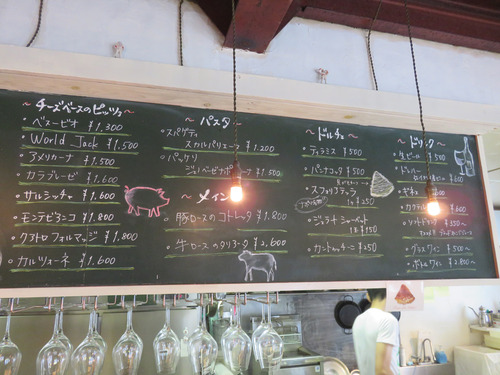 ～チーズベースのピッツァ～
・ベスービオ ¥1,300
・World Jack ¥1,500
・アメリカーナ ¥1,500
・カラブレーゼ ¥1,600
・サルシッチャ ¥1,600
・モンテビアンコ ¥1,800
・クアトロフォルマッジ ¥1,800
・カルツォーネ ¥1,600
～パスタ～
・スパゲティ
スカルパリエーラ ¥1,200
・パッケリ
¥1,500
～メイン
豚ロースのコトレッタ ¥1,800
牛ロース ¥2,600
～ドルチェ
・ティラミス ¥500
・パンナコッタ ¥500
・スフォリアテッラ
¥350
・ジェラート シャーベット
¥350
・カントゥッチーニ ¥250
～ドリンク
・生ビール ¥500
・グラスワイン ¥500～
・ボトルワイン 2,800～